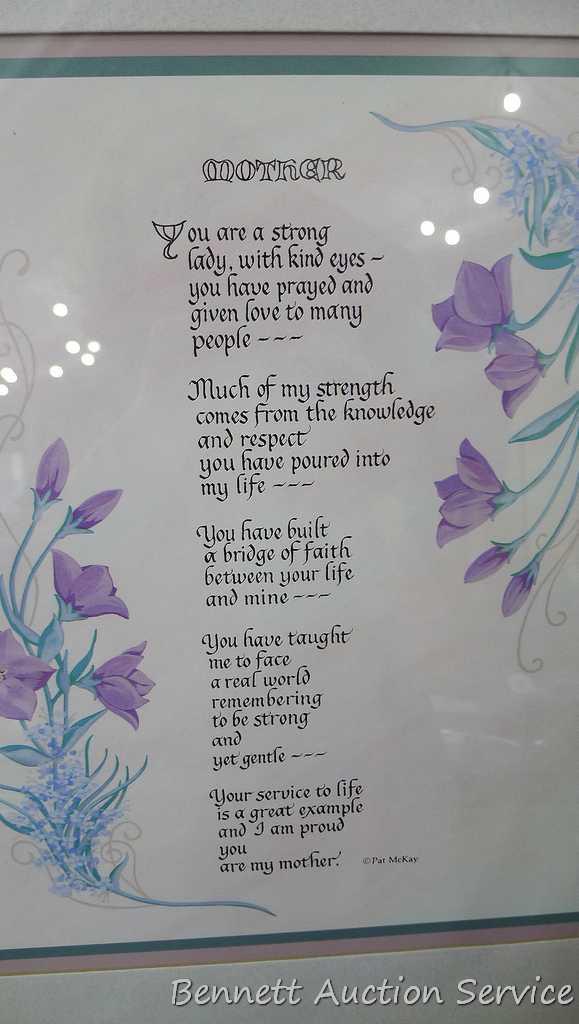 MOTHER
You are a strong
lady, with kind eyes ~
you have prayed and
given love to many
people ~~~
Much of my strength
comes from the knowledge
and respect
you have poured into
my life ~~~
You have built
a bridge of faith
between your life
and mine ~~~
You have taught
me to face
a real world
remembering
to be strong
and
yet gentle ~~~
Your service to life
is a great example
and I am proud
you
are my mother.
©Pat McKay
Bennett Auction Service